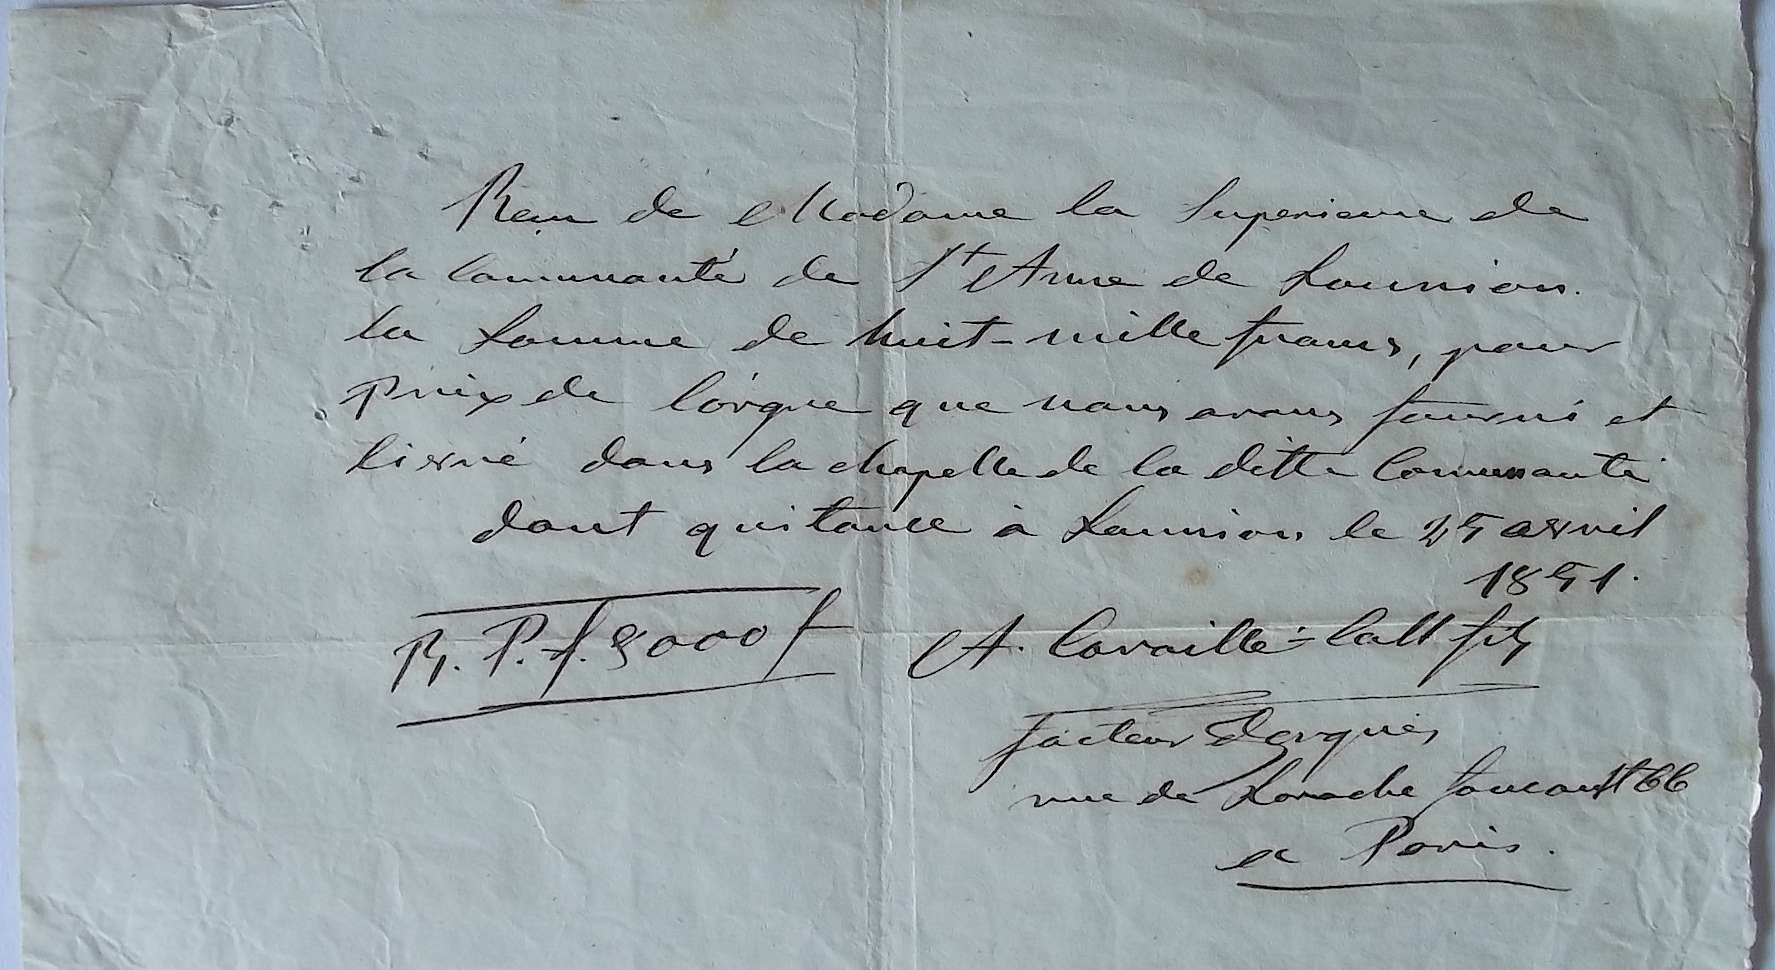 Reçu de Madame la Superieure de
la Communauté de St Anne de Lannion.
la Somme de huit-mille francs, pour
prix de l'orgue que nous avons fourni et
livré dans la chapelle de la ditte Communauté
dont quitance à Lannion le 25 avril
1851.
B. P. f. 8000 f
A. Cavaillé=Coll fils
facteur d'orgues
rue de Laroche foucault 66
a Paris.